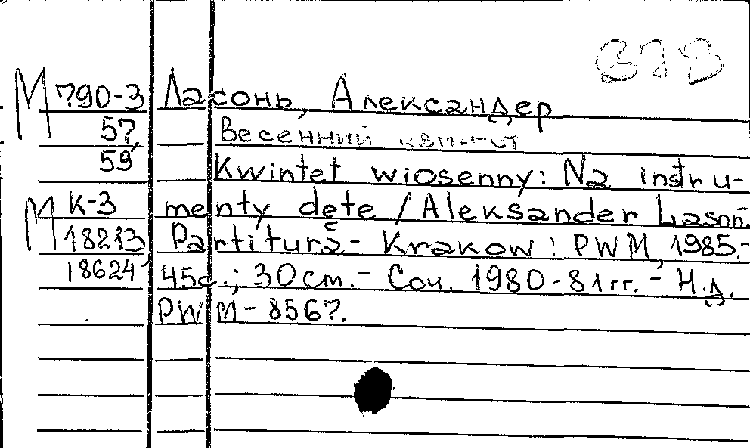 M 790-3 Ласонь, Александер
57, Весенний квинтет
59 Kwintet wiosenny: Na instru-
M K-3 menty dęte / Aleksander Lasoń.
18213, Partitura - Krakow: PWM, 1985.-
18624 45с.; 30cm. - Соч. 1980-81гг. - Н.д.
PWM - 8567.